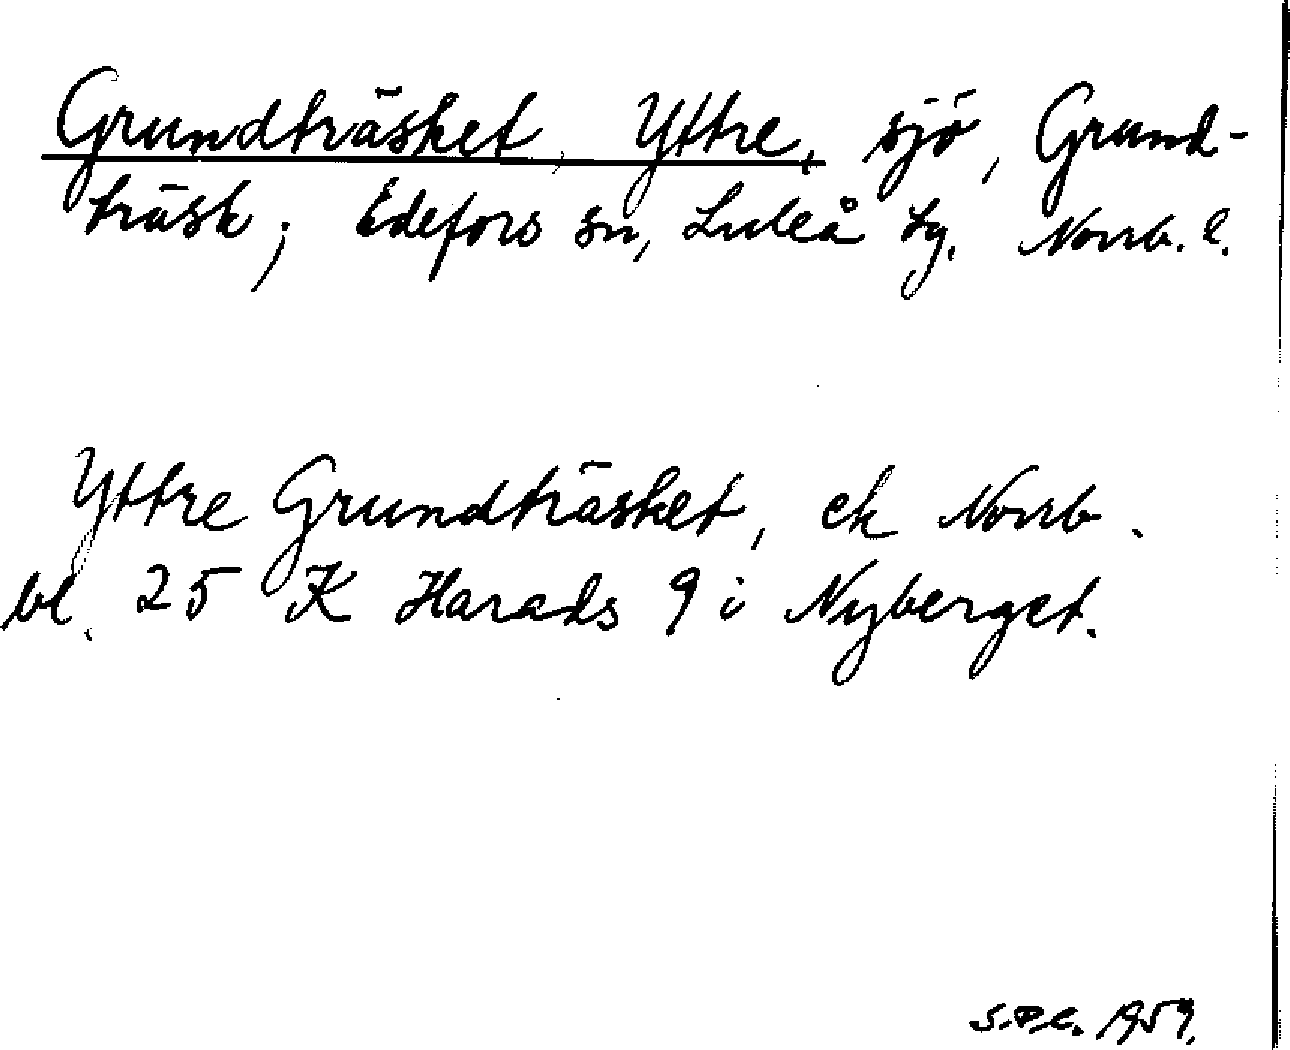 Grundträsket, Yttre, sjö, Grund-
träsk; Edefors sn, Luleå tg. Norrb. l.
Yttre Grundträsket, ek Norrb.
bl. 25 K Harads 9 i Nyberget.
1959.